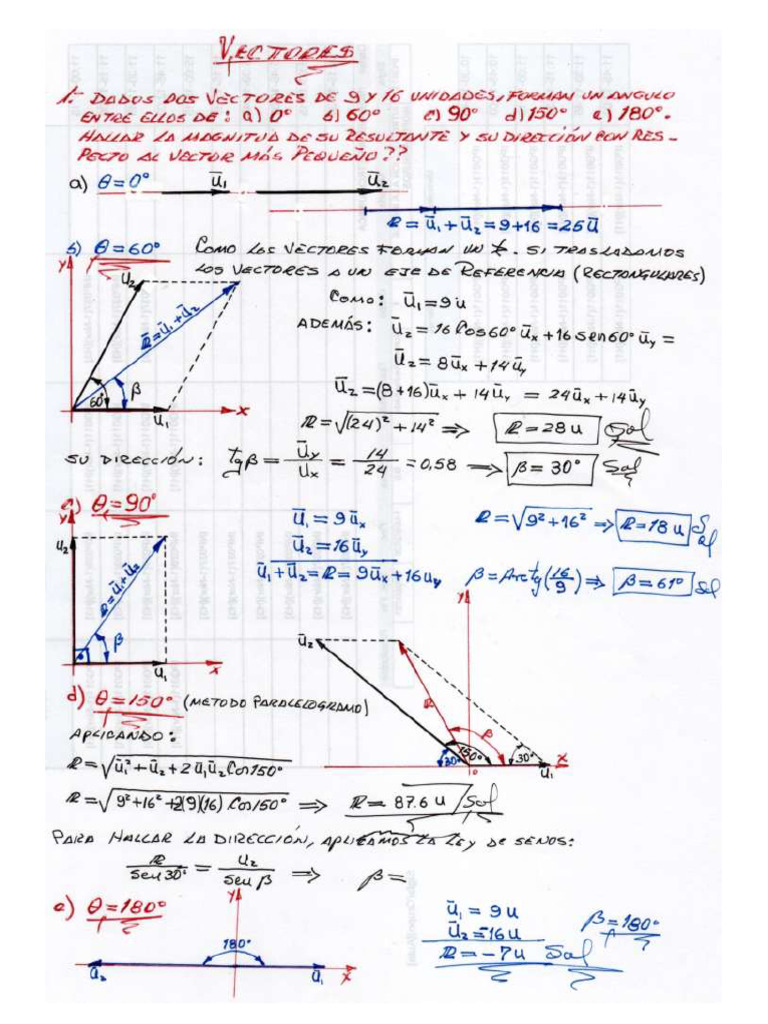 VECTORES
1.- DADOS DOS VECTORES DE 9 Y 16 UNIDADES, FORMAN UN ANGULO
ENTRE ELLOS DE: a) 0° b) 60° c) 90° d) 150° e) 180°.
HALLAR LA MAGNITUD DE SU RESULTANTE Y SU DIRECCIÓN CON RES-
PECTO AL VECTOR MÁS PEQUEÑO??
a) θ=0° U̅₁ U̅₂
R = U̅₁+U̅₂ = 9+16 = 25U̅
b) θ=60° COMO LOS VECTORES FORMAN UN ∡. SI TRASLADAMOS
LOS VECTORES A UN EJE DE REFERENCIA (RECTANGULARES)
Y U₂ R̅=U̅₁+U̅₂ 60° β U₁ X
COMO: U̅₁=9u
ADEMÁS: U̅₂ = 16 Cos60° U̅x + 16 sen60° U̅y =
U̅₂ = 8U̅x + 14U̅y
U̅₂ = (8+16)U̅x + 14U̅y = 24U̅x + 14U̅y
R = √((24)² + 14²) ⇒ R = 28 u Sol
SU DIRECCIÓN: tgβ = U̅y/Ux = 14/24 = 0,58 ⇒ β = 30° Sol
c) θ=90°
Y U₂ R̅=U̅₁+U̅₂ β U₁ X
U̅₁ = 9U̅x
U̅₂ = 16U̅y
U̅₁+U̅₂ = R = 9U̅x + 16Uy
R = √(9² + 16²) ⇒ R = 18 u Sol
β = Arctg(16/9) ⇒ β = 61° Sol
Y U₂ R β 30° 150° 30° 0 U₁ X
d) θ=150° (METODO PARALELOGRAMO)
APLICANDO:
R = √(U̅₁² + U̅₂ + 2U̅₁U̅₂Cos150°
R = √(9² + 16² + 2(9)(16) Cos150° ⇒ R = 87.6 u Sol
PARA HALLAR LA DIRECCIÓN, APLICAMOS LA LEY DE SENOS:
R/Sen30° = U₂/Senβ ⇒ β =
e) θ=180°
Y 180° U₂ U₁ X
U̅₁ = 9u
U̅₂ = -16u
R = -7u Sol
β = 180°